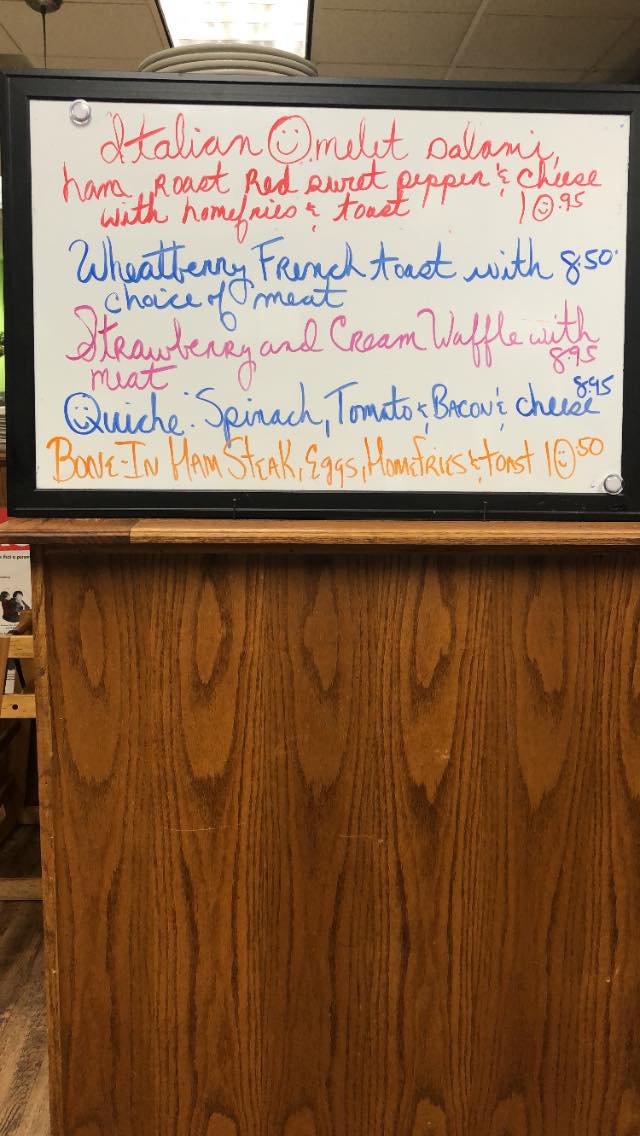 Italian Omelet salami,
ham, Roast Red sweet pepper & cheese
with homefries & toast 10.95
Wheatberry French toast with 8.50
choice of meat
Strawberry and Cream Waffle with
meat 8.95
Quiche: Spinach, Tomato & Bacon & cheese 8.95
Bone-In Ham Steak, Eggs, Homefries & toast 10.50